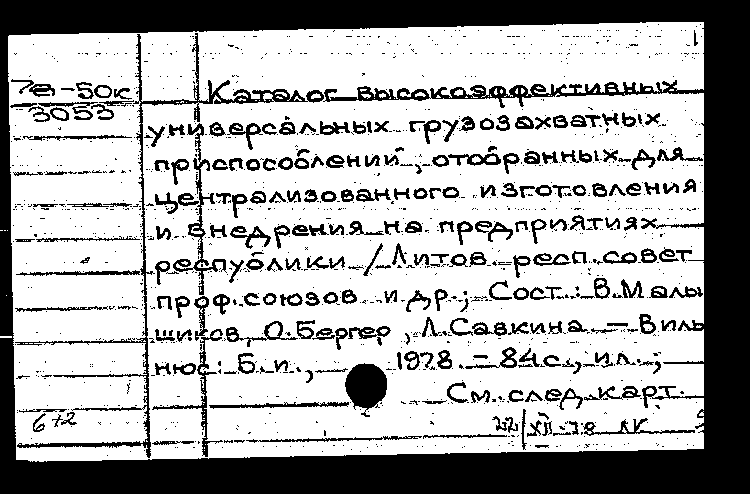 7е-50к
3053
Каталог высокоэффективных
универсальных грузозахватных
приспособлений, отобранных для
централизованного изготовления
и внедрения на предприятиях
республики / Литов. респ. совет
проф.союзов и др.; Сост.: В.Малы
шиков, О.Бергер, Л.Савкина. — Виль
нюс: Б.и., 1978. - 84с., ил.;
См. след. карт.
6+2
22/XII-78